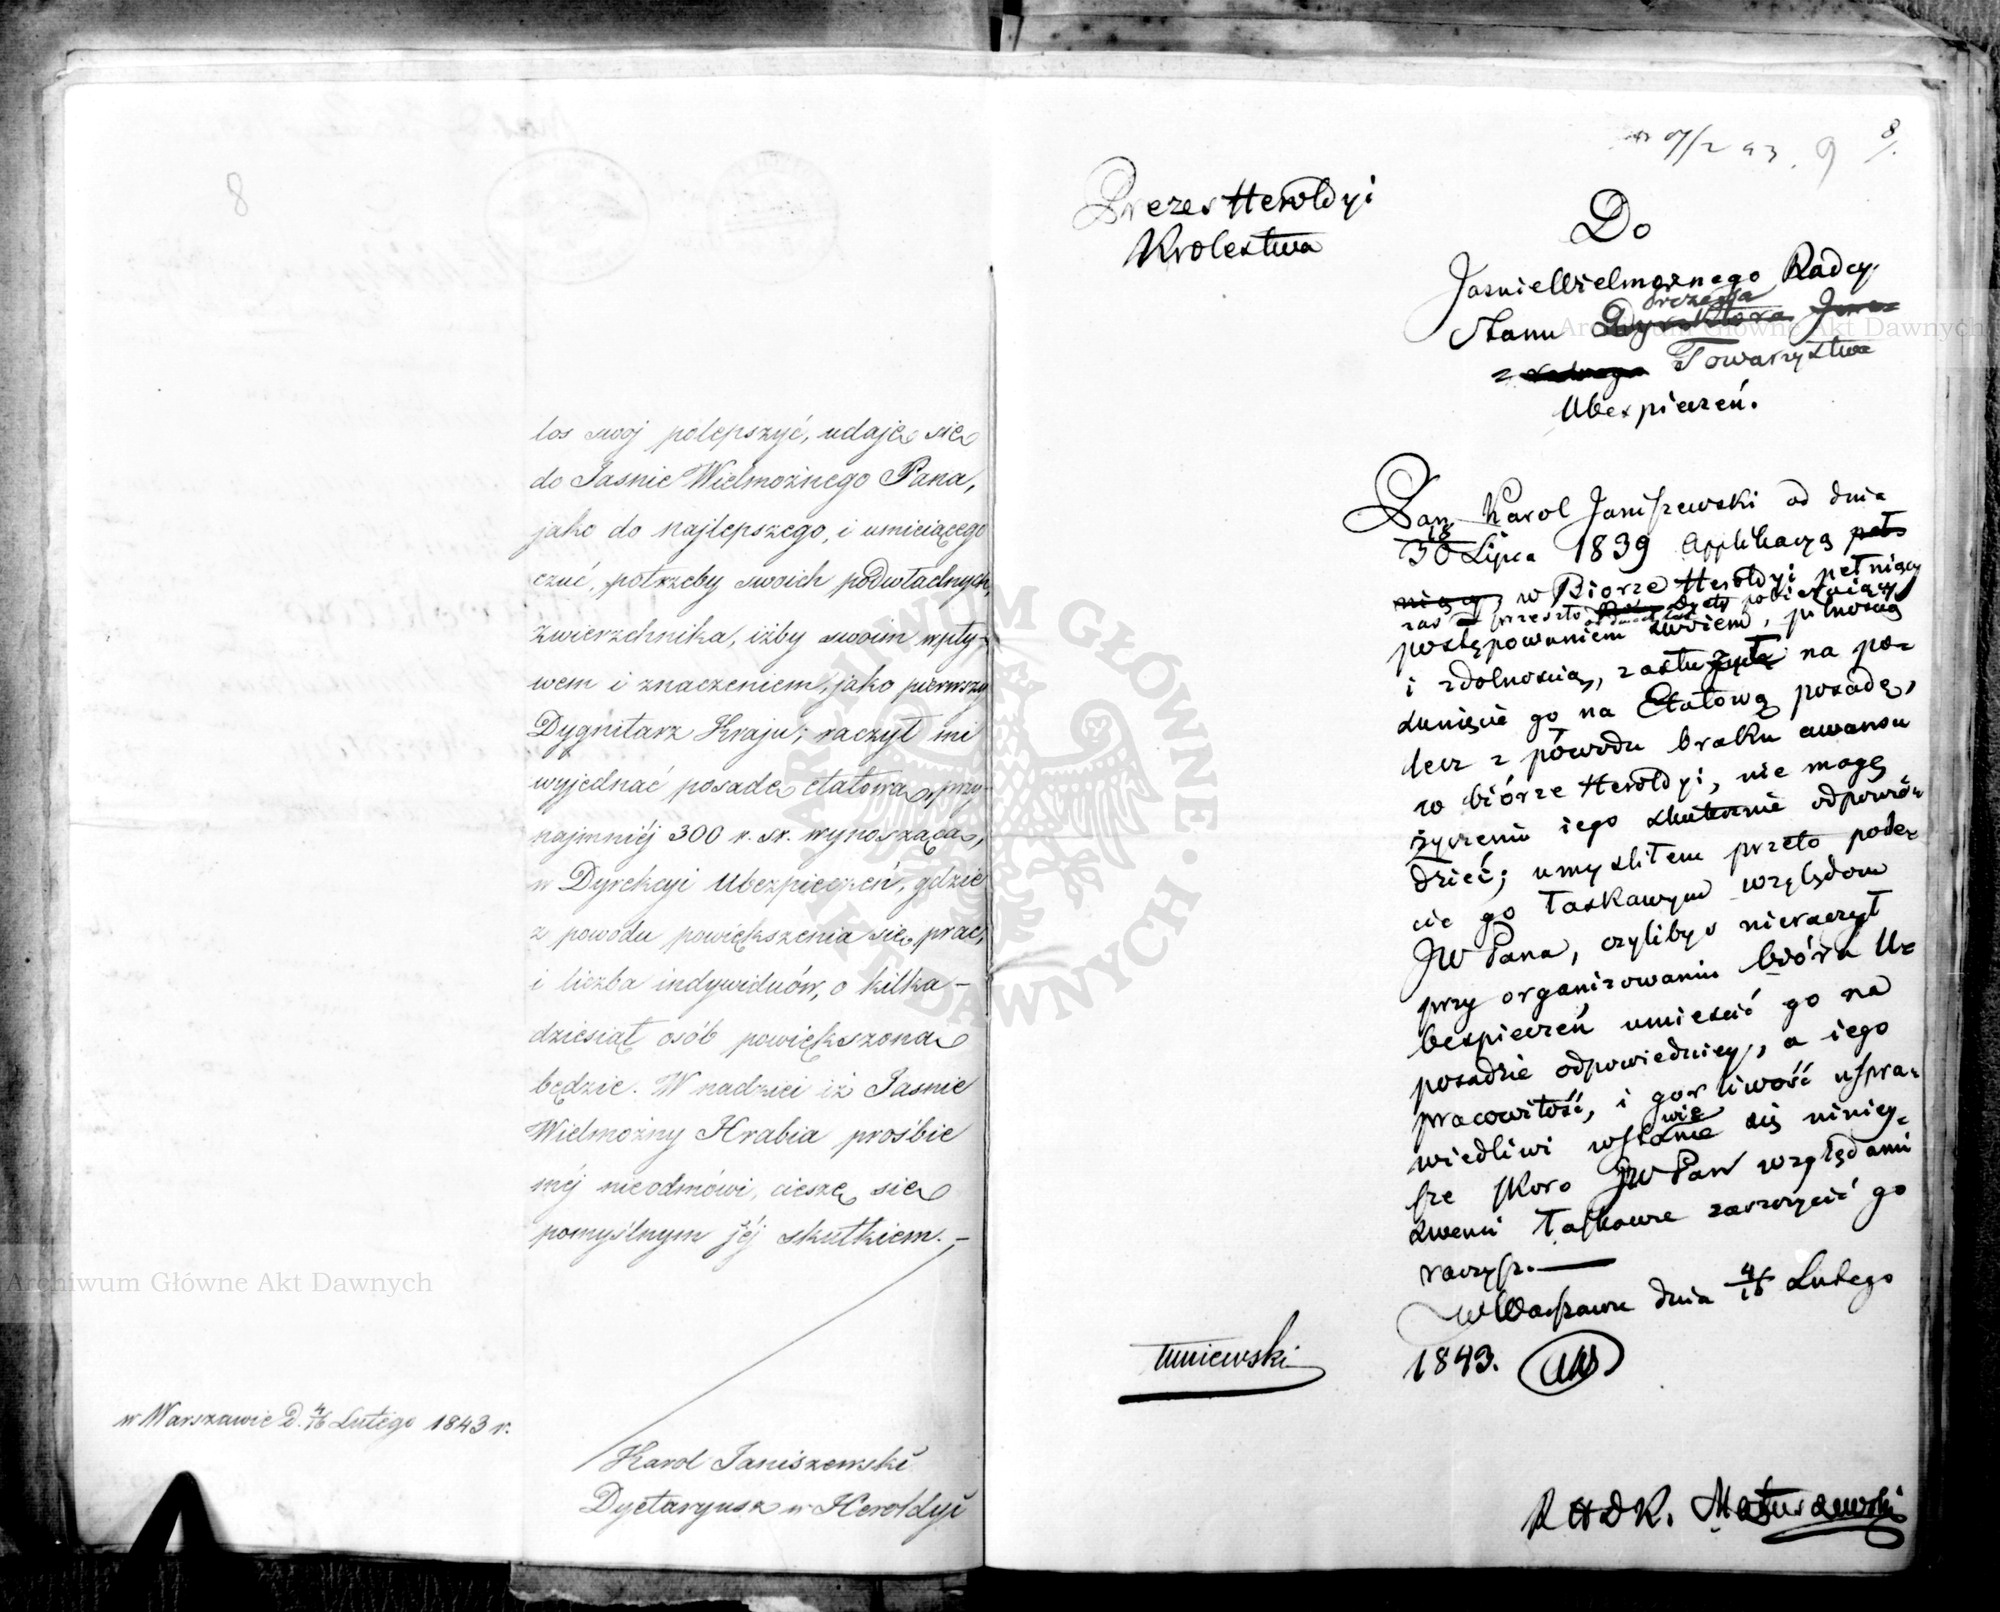 8
los swoj polepszyć, udaję się
do Jasnie Wielmożnego Pana,
jako do najlepszego, i umiejącego
czuć, potrzeby swoich podwładnych,
Zwierzchnika, iżby swoim wpły-
wem i znaczeniem, jako pierwszy
Dygnitarz Kraju; raczył mi
wyjednać posadę etatową, przy-
najmniéj 300 r. sr. wynoszącą,
w Dyrekcyi Ubezpieczeń, gdzie
z powodu powiększenia się prac,
i liczba indywiduów, o kilka-
dziesiąt osób powiększona
będzie. W nadziei iż Jasnie
Wielmożny Hrabia prośbie
méj nieodmówi, cieszę się
pomyślnym jéj skutkiem. –
w Warszawie D. 4/16 Lutego 1843 r.
Karol Janiszewski
Dyetaryusz w Heroldyi
9
8/.
Prezes Heroldyi
Krolestwa
Do
JasnieWielmożnego Radcy
Prezesa
Stanu Dyrektora
Towarzystwa
Ubespieczeń.
Pan Karol Janiszewski od dnia
18
30 Lipca 1839 applikacyą peł-
niący, w Biorze Heroldyi pełniący
zaś przeszło pobierający
postępowaniem swoiem, pilnoscią
i zdolnoscią, zasłużył na po-
sunięcie go na Etatową posadę,
lecz z powodu braku awansu
w biórze Heroldyi, nie mogę
życzeniu iego skutecznie odpowie-
dzieć; umysliłem przeto pole-
cić go łaskawym względom
JW Pana, czyliby nieraczył
przy organizowaniu bióra U-
bespieczeń umiescić go na
posadzie odpowiedniey, a iego
pracowitość, i gorliwość uspra-
wie
wiedliwi wstawienie się niniey-
sze skoro JW Pan względami
swemi łaskawie zaszczycić go
raczysz.—
w Warszawie dnia 4/16 Lutego
1843.
Łuniewski
R H D K. Matuszewski
ARCHIWUM GŁÓWNE AKT DAWNYCH
Archiwum Główne Akt Dawnych
Archiwum Główne Akt Dawnych